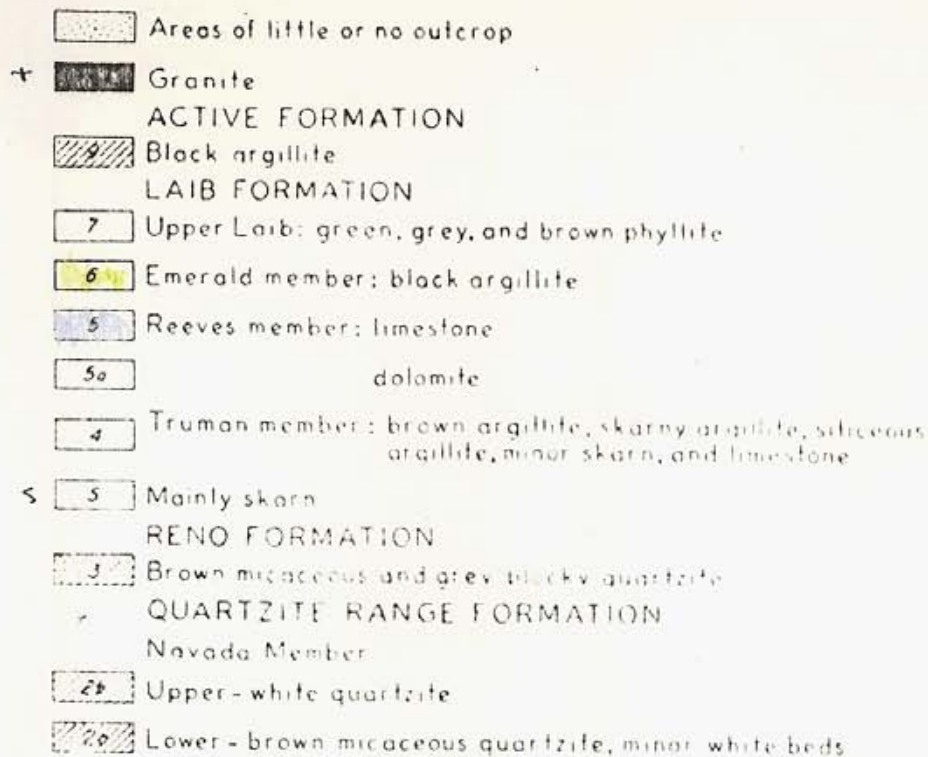 Areas of little or no outcrop
+ Granite
ACTIVE FORMATION
9 Black argillite
LAIB FORMATION
7 Upper Laib: green, grey, and brown phyllite
6 Emerald member: black argillite
5 Reeves member: limestone
5a dolomite
4 Truman member: brown argillite, skarny argillite, siliceous
argillite, minor skarn, and limestone
S S Mainly skarn
RENO FORMATION
3 Brown micaceous and grey blocky quartzite
QUARTZITE RANGE FORMATION
Navada Member
2b Upper - white quartzite
2a Lower - brown micaceous quartzite, minor white beds